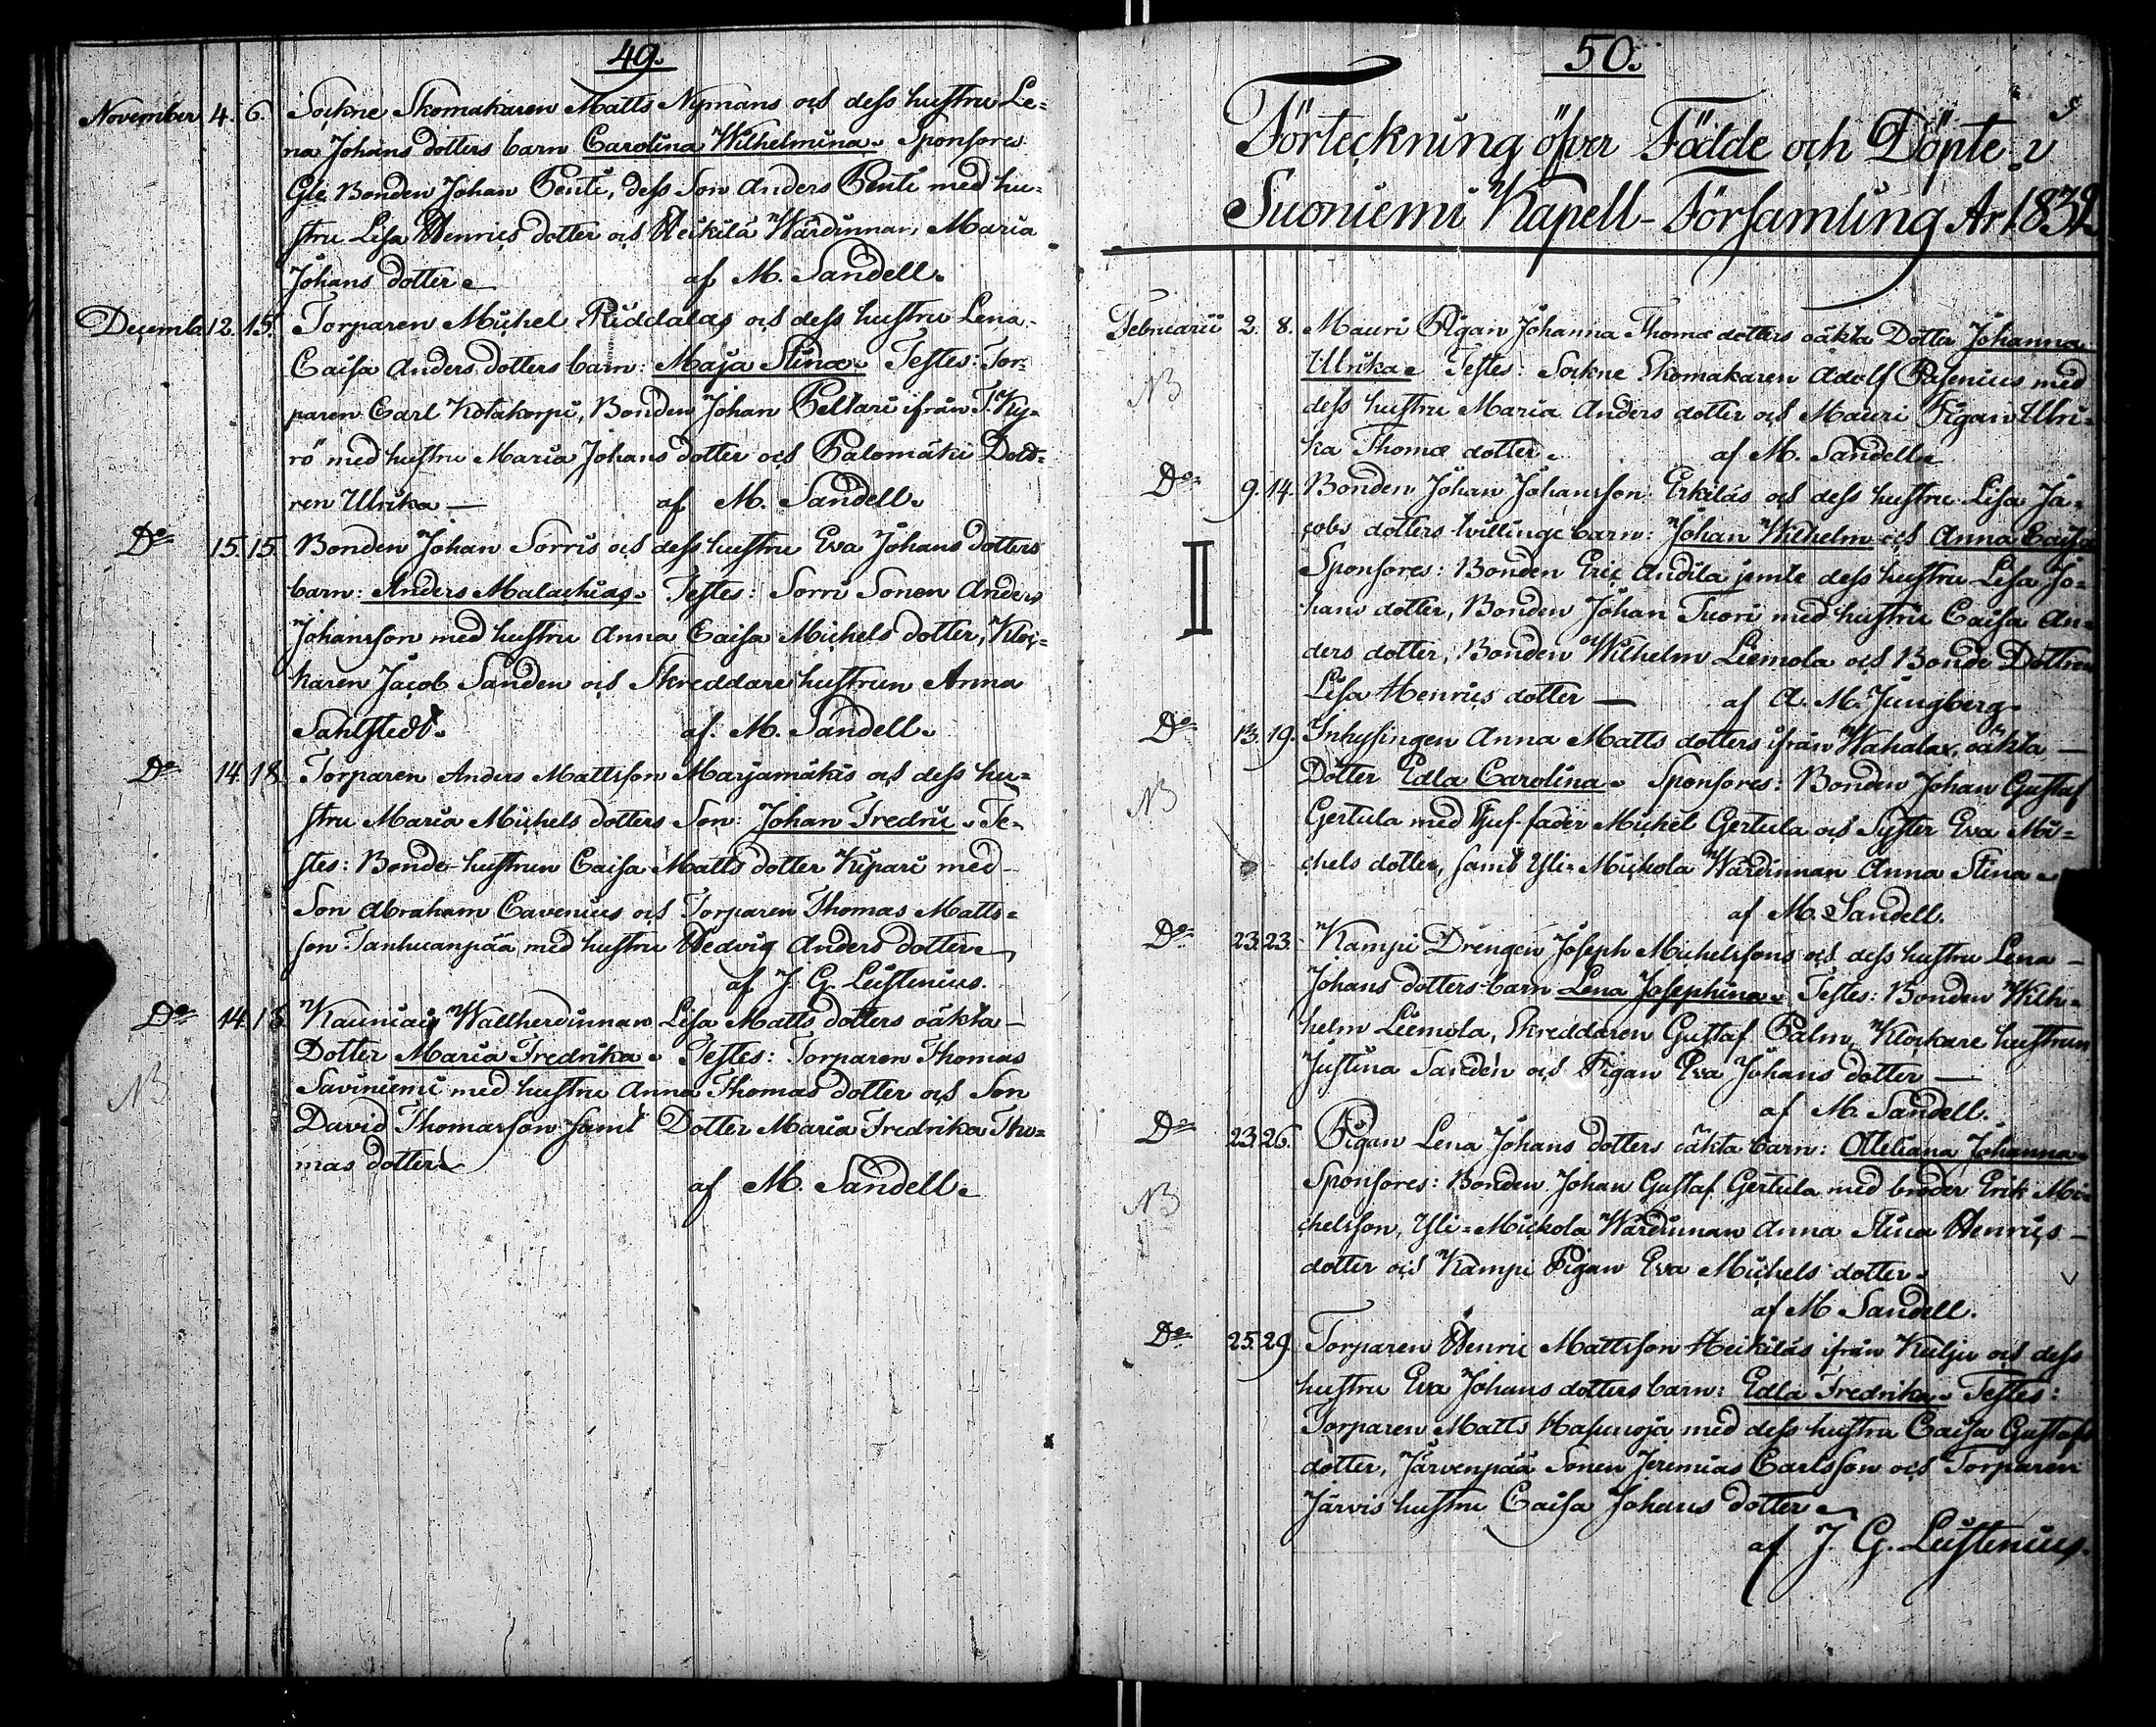 49.
November 4. 6. Sockne Skomakaren Matts Nymans och dess hustru Le=
na Johans dotters barn Carolina Wilhelmina. Sponsores
Gle Bonden Johan Penti, dess Son Anders Penti med hu=
stru Lisa Henrics dotter och Heikilä Wärdinnan Maria
Johans dotter
af M. Sandell.
Decemb. 12. 15. Torparen Michel Riddalas och dess hustru Lena
Caisa Anders dotters barn: Maja Stina. Testes: Tor=
paren Carl Kotakorpi, Bonden Johan Peltari ifrån T. Ky=
rö med hustru Maria Johans dotter och Palomäki Dott=
ren Ulrika —
af M. Sandell.
Do 15. 15. Bonden Johan Sorris och dess hustru Eva Johans dotters
barn: Anders Malachias. Testes: Sorri Sonen Anders
Johansson med hustru Anna Caisa Michels dotter, Kloc=
karen Jacob Sanden och Skreddare hustrun Anna
Sahlstedt.
af M. Sandell.
Do 14. 18. Torparen Anders Mattsson Marjamäkis och dess hu=
stru Maria Michels dotters Son: Johan Fredric. Te=
stes: Bonde-hustrun Caisa Matts dotter Kipari med
Son Abraham Cavenius och Torparen Thomas Matts=
son Tanhuanpää med hustru Hedvig Anders dotter
af J. G. Leistenius.
Do 14. 18. Kauniais Wallherdinnan Lisa Matts dotters oäkta
Dotter Maria Fredrika. Testes: Torparen Thomas
NB Saviniemi med hustru Anna Thomas dotter och Son
David Thomasson samt Dotter Maria Fredrika Tho=
mas dotter
af M. Sandell.
50.
Förteckning öfver Födde och Döpte i
Suoniemi Kapell-Församling År 1832.
Februarii 2. 8. Mauri Pigan Johanna Thomæ dotters oäkta Dotter Johanna
NB Ulrika. Testes: Sockne Skomakaren Adolf Pasenius med
dess hustru Maria Anders dotter och Mauri Pigan Ulri=
ka Thomæ dotter.
af M. Sandell.
Do 9. 14. Bonden Johan Johansson Erkiläs och dess hustru Lisa Ja=
cobs dotters tvillinge barn: Johan Wilhelm och Anna Caisa
II Sponsores: Bonden Eric Andila jemte dess hustru Lisa Jo=
hans dotter, Bonden Johan Tuori med hustru Caisa An=
ders dotter, Bonden Wilhelm Liemola och Bonde Dottren
Lisa Henrics dotter —
af A. M. Ljungberg
Do 13. 19. Inhysingen Anna Matts dotters ifrån Wahalax, oäkta —
Dotter Edla Carolina. Sponsores: Bonden Johan Gustaf
NB Gertula med Stjuf-fader Michel Gertula och Syster Eva Mi=
chels dotter, samt Yli=Mickola Wärdinnan Anna Stina
af M. Sandell.
Do 23. 23. Kampi Drengen Joseph Michelssons och dess hustru Lena —
Johans dotters barn Lena Josephina. Testes: Bonden Wil=
helm Liemola, Skreddaren Gustaf Palm, Klockare hustrun
Justina Sandén och Pigan Eva Johans dotter —
af M. Sandell.
Do 23. 26. Pigan Lena Johans dotters oäkta barn: Otteliana Johanna
NB Sponsores: Bonden Johan Gustaf Gertula med broder Erik Mi=
chelsson, Yli=Mickola Wärdinnan Anna Stina Henrics —
dotter och Kampi Pigan Eva Michels dotter.
af M Sandell.
Do 25. 29. Torparen Henric Mattsson Heikiläs ifrån Kulju och dess
hustru Eva Johans dotters barn: Edla Fredrika. Testes:
Torparen Matts Hasunoja med dess hustru Caisa Gustafs
dotter, Järvenpää Sonen Jeremias Carlsson och Torparen
Järvis hustru Caisa Johans dotter
af J. G. Leistenius.